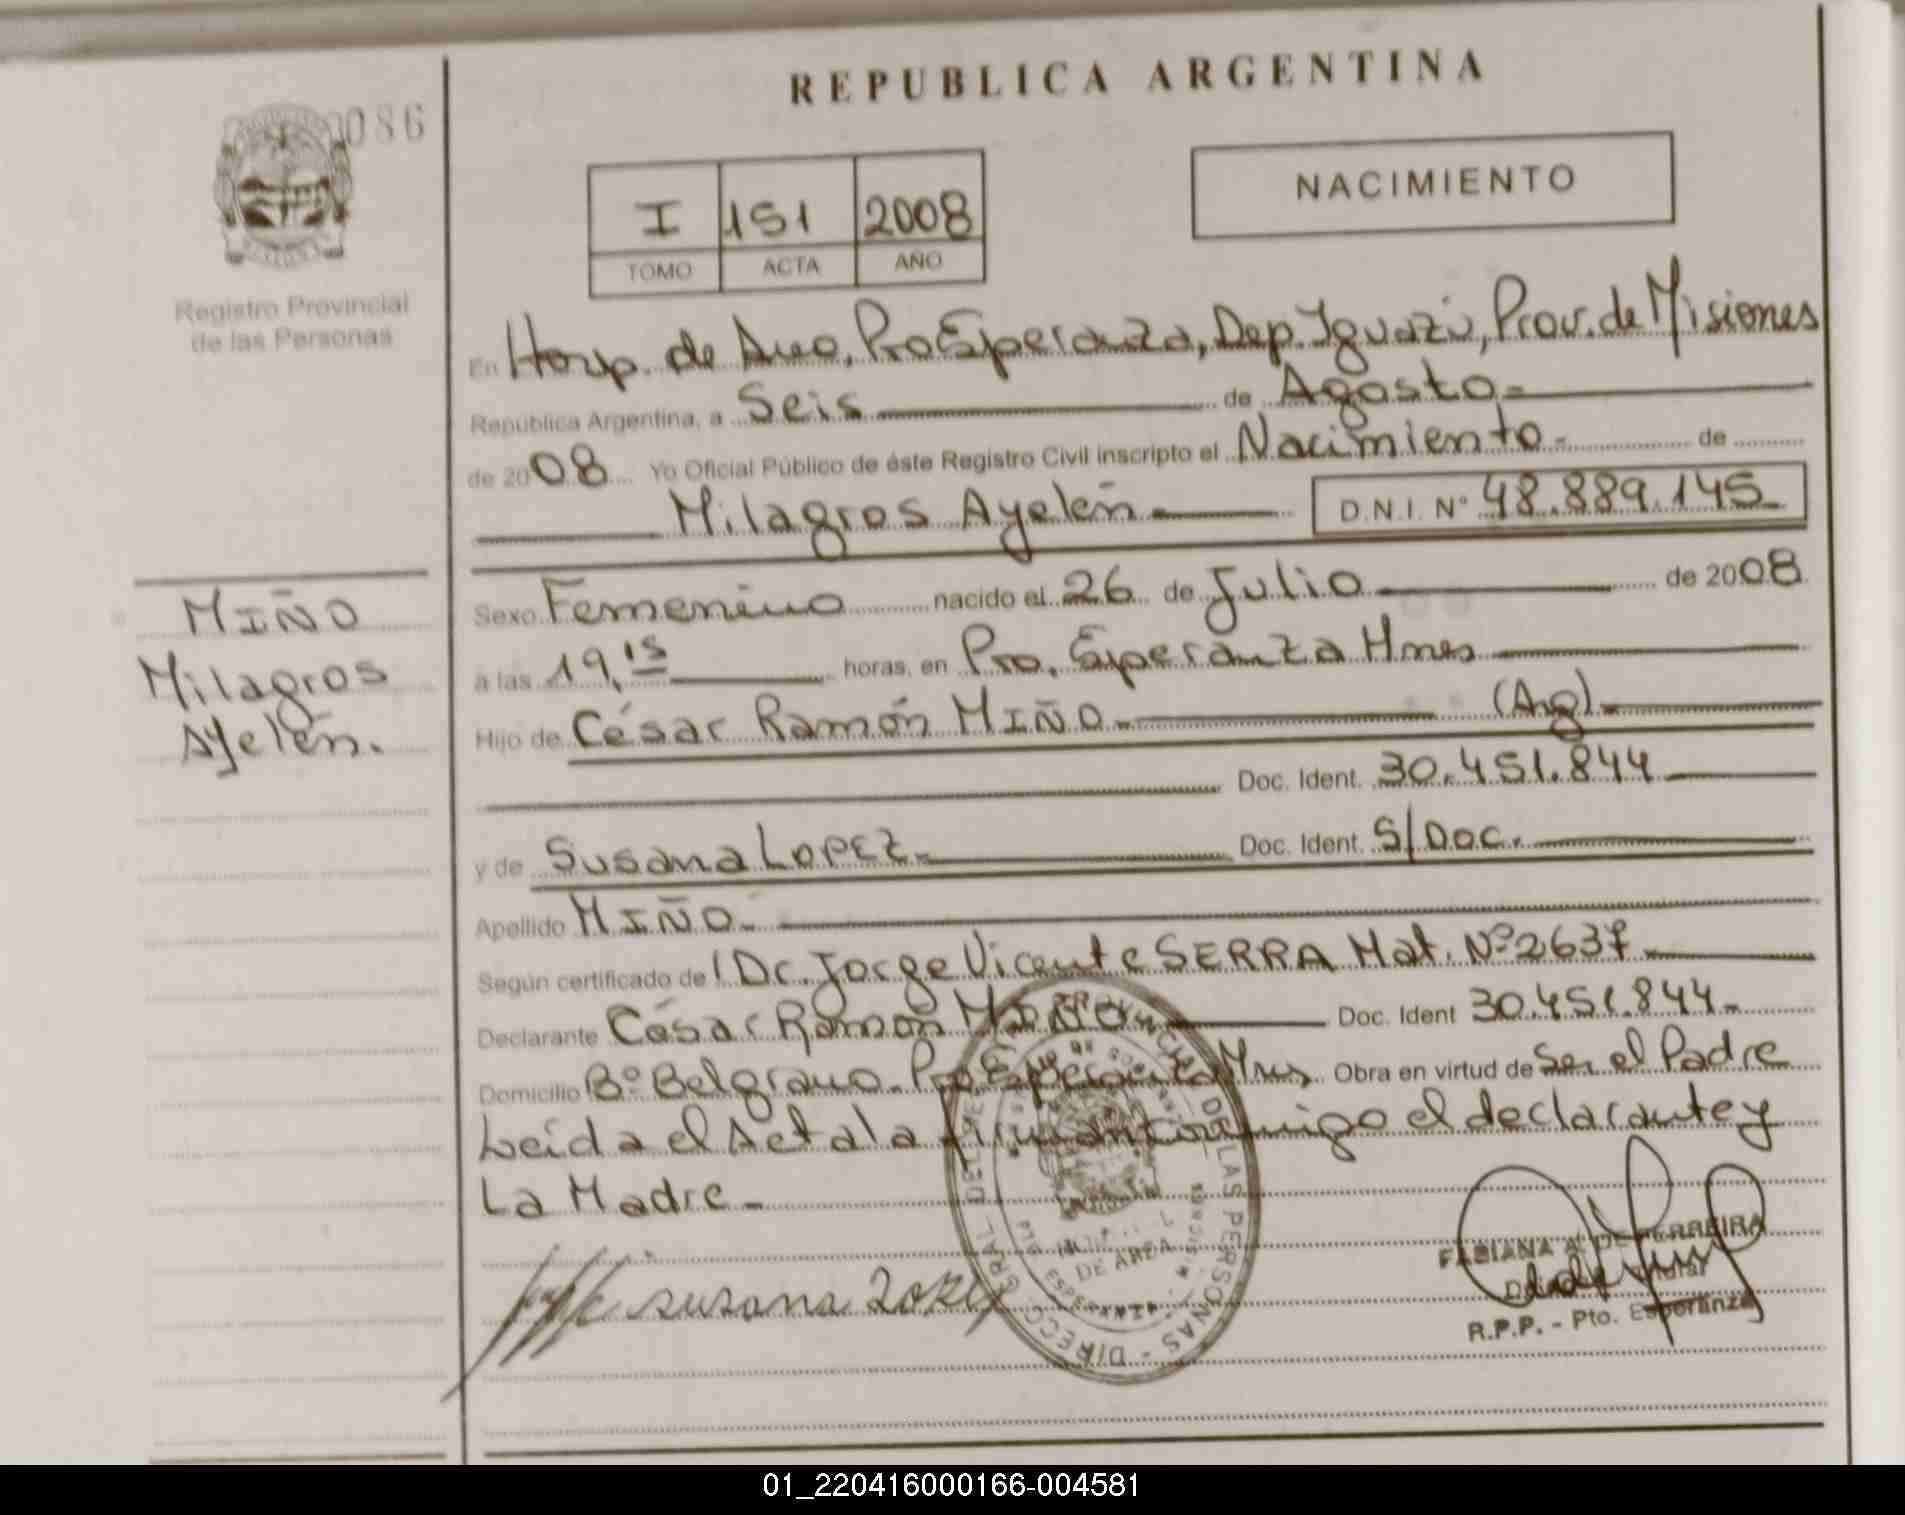 REPUBLICA ARGENTINA
086
NACIMIENTO
I 151 2008
TOMO ACTA AÑO
Registro Provincial
de las Personas
En Hosp. de Area, Pto Esperanza, Dep. Iguazú, Prov. de Misiones
República Argentina, a Seis de Agosto
de 2008 Yo Oficial Público de éste Registro Civil inscripto el Nacimiento de
Milagros Ayelén D.N.I. Nº 48.889.145
MIÑO
Milagros
Ayelén.
Sexo Femenino nacido el 26 de Julio de 2008
a las 19,15 horas, en Pto. Esperanza Mnes
Hijo de César Ramón MIÑO (Arg)
Doc. Ident. 30.451.844
y de Susana LOPEZ Doc. Ident. S/Doc.
Apellido MIÑO
Según certificado de Dr. Jorge Vicente SERRA Mat. Nº 2637
Declarante César Ramón MIÑO Doc. Ident 30.451.844
Domicilio Bº Belgrano Pto Esperanza Mnes Obra en virtud de Ser el Padre
Leída el Acta la firman conmigo el declarante y
La Madre
susana Lopez
DIRECC. GRAL. DEL REG. PROVINCIAL DE LAS PERSONAS
DE AREA
ESPERANZA
FABIANA A. DE FERREIRA
R.P.P. - Pto. Esperanza
01_220416000166-004581